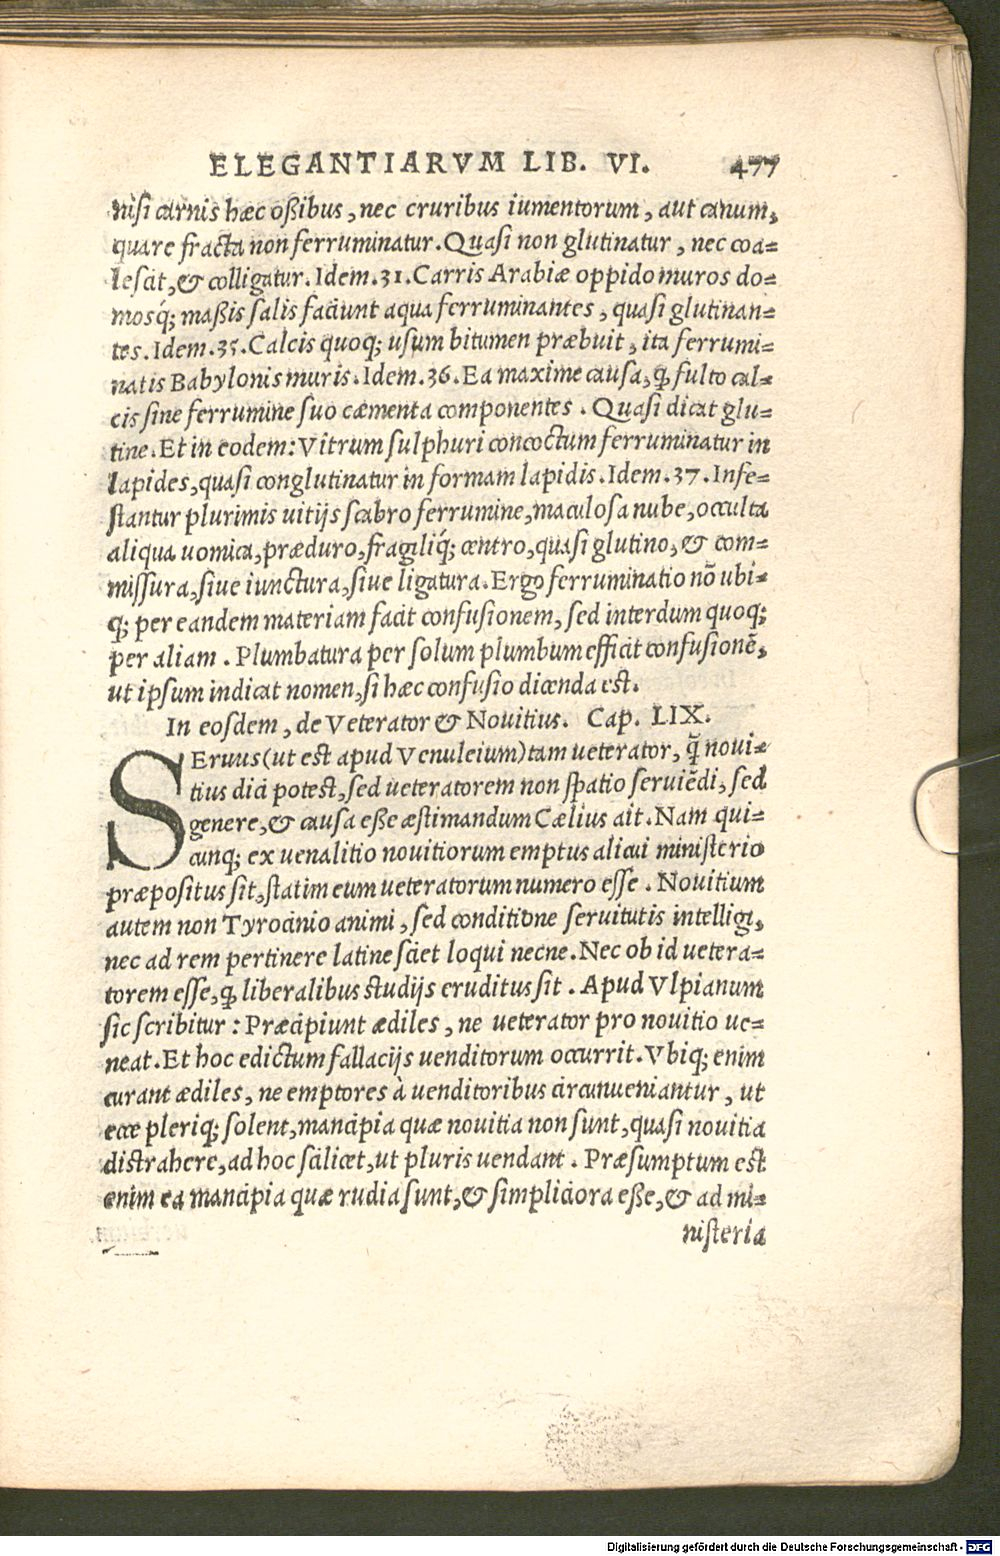 ELEGANTIARVM LIB. VI. 477
nisi carnis hæc oßibus, nec cruribus iumentorum, aut canum,
quare fracta non ferruminatur. Quasi non glutinatur, nec coa=
lescit, & colligatur. Idem. 31. Carris Arabiæ oppido muros do=
mosq́; maßis salis faciunt aqua ferruminantes, quasi glutinan=
tes. Idem. 35. Calcis quoq; usum bitumen præbuit, ita ferrumi=
natis Babylonis muris. Idem. 36. Ea maxime causa, ꝙ fulto cal=
cis sine ferrumine suo cæmenta componentes. Quasi dicat glu=
tine. Et in eodem: Vitrum sulphuri concoctum ferruminatur in
lapides, quasi conglutinatur in formam lapidis. Idem. 37. Infe=
stantur plurimis uitijs scabro ferrumine, maculosa nube, occulta
aliqua uomica, præduro, fragiliq́; centro, quasi glutino, & com=
missura, siue iunctura, siue ligatura. Ergo ferruminatio nō ubi=
q; per eandem materiam facit confusionem, sed interdum quoq;
per aliam. Plumbatura per solum plumbum efficit confusionē,
ut ipsum indicat nomen, si hæc confusio dicenda est.
In eosdem, de Veterator & Nouitius. Cap. LIX.
SEruus (ut est apud Venuleium) tam ueterator, q̄ noui=
tius dici potest, sed ueteratorem non spatio seruiēdi, sed
genere, & causa eße æstimandum Cælius ait. Nam qui=
cunq; ex uenalitio nouitiorum emptus alicui ministerio
præpositus sit, statim eum ueteratorum numero esse. Nouitium
autem non Tyrocinio animi, sed conditione seruitutis intelligi,
nec ad rem pertinere latine sciet loqui necne. Nec ob id uetera=
torem esse, ꝙ liberalibus studijs eruditus sit. Apud Vlpianum
sic scribitur: Præcipiunt ædiles, ne ueterator pro nouitio ue=
neat. Et hoc edictum fallacijs uenditorum occurrit. Vbiq; enim
curant ædiles, ne emptores à uenditoribus circunueniantur, ut
ecce pleriq; solent, mancipia quæ nouitia non sunt, quasi nouitia
distrahere, ad hoc scilicet, ut pluris uendant. Præsumptum est
enim ea mancipia quæ rudia sunt, & simpliciora eße, & ad mi=
nisteria
Digitalisierung gefördert durch die Deutsche Forschungsgemeinschaft - DFG